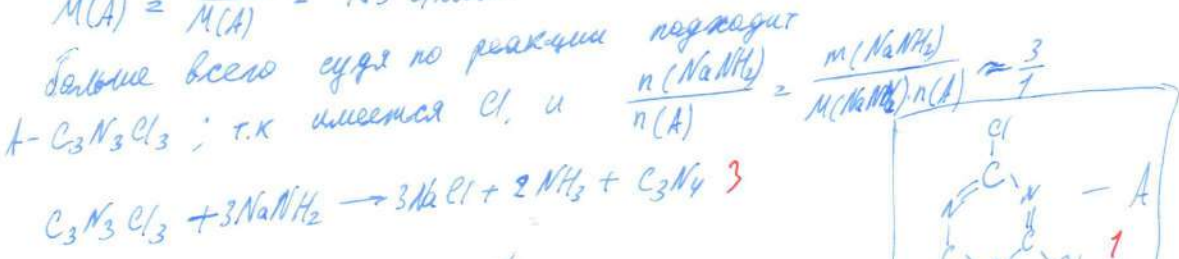 M(A) = M(A) =
больше всего судя по реакции подходит
A - C₃N₃Cl₃ ; т.к имеется Cl, и n(NaNH₂) / n(A) = m(NaNH₂) / M(NaNH₂)·n(A) ≈ 3/1
C₃N₃Cl₃ + 3NaNH₂ → 3NaCl + 2NH₃ + C₃N₄ 3
Cl
C N
N C
— A
1